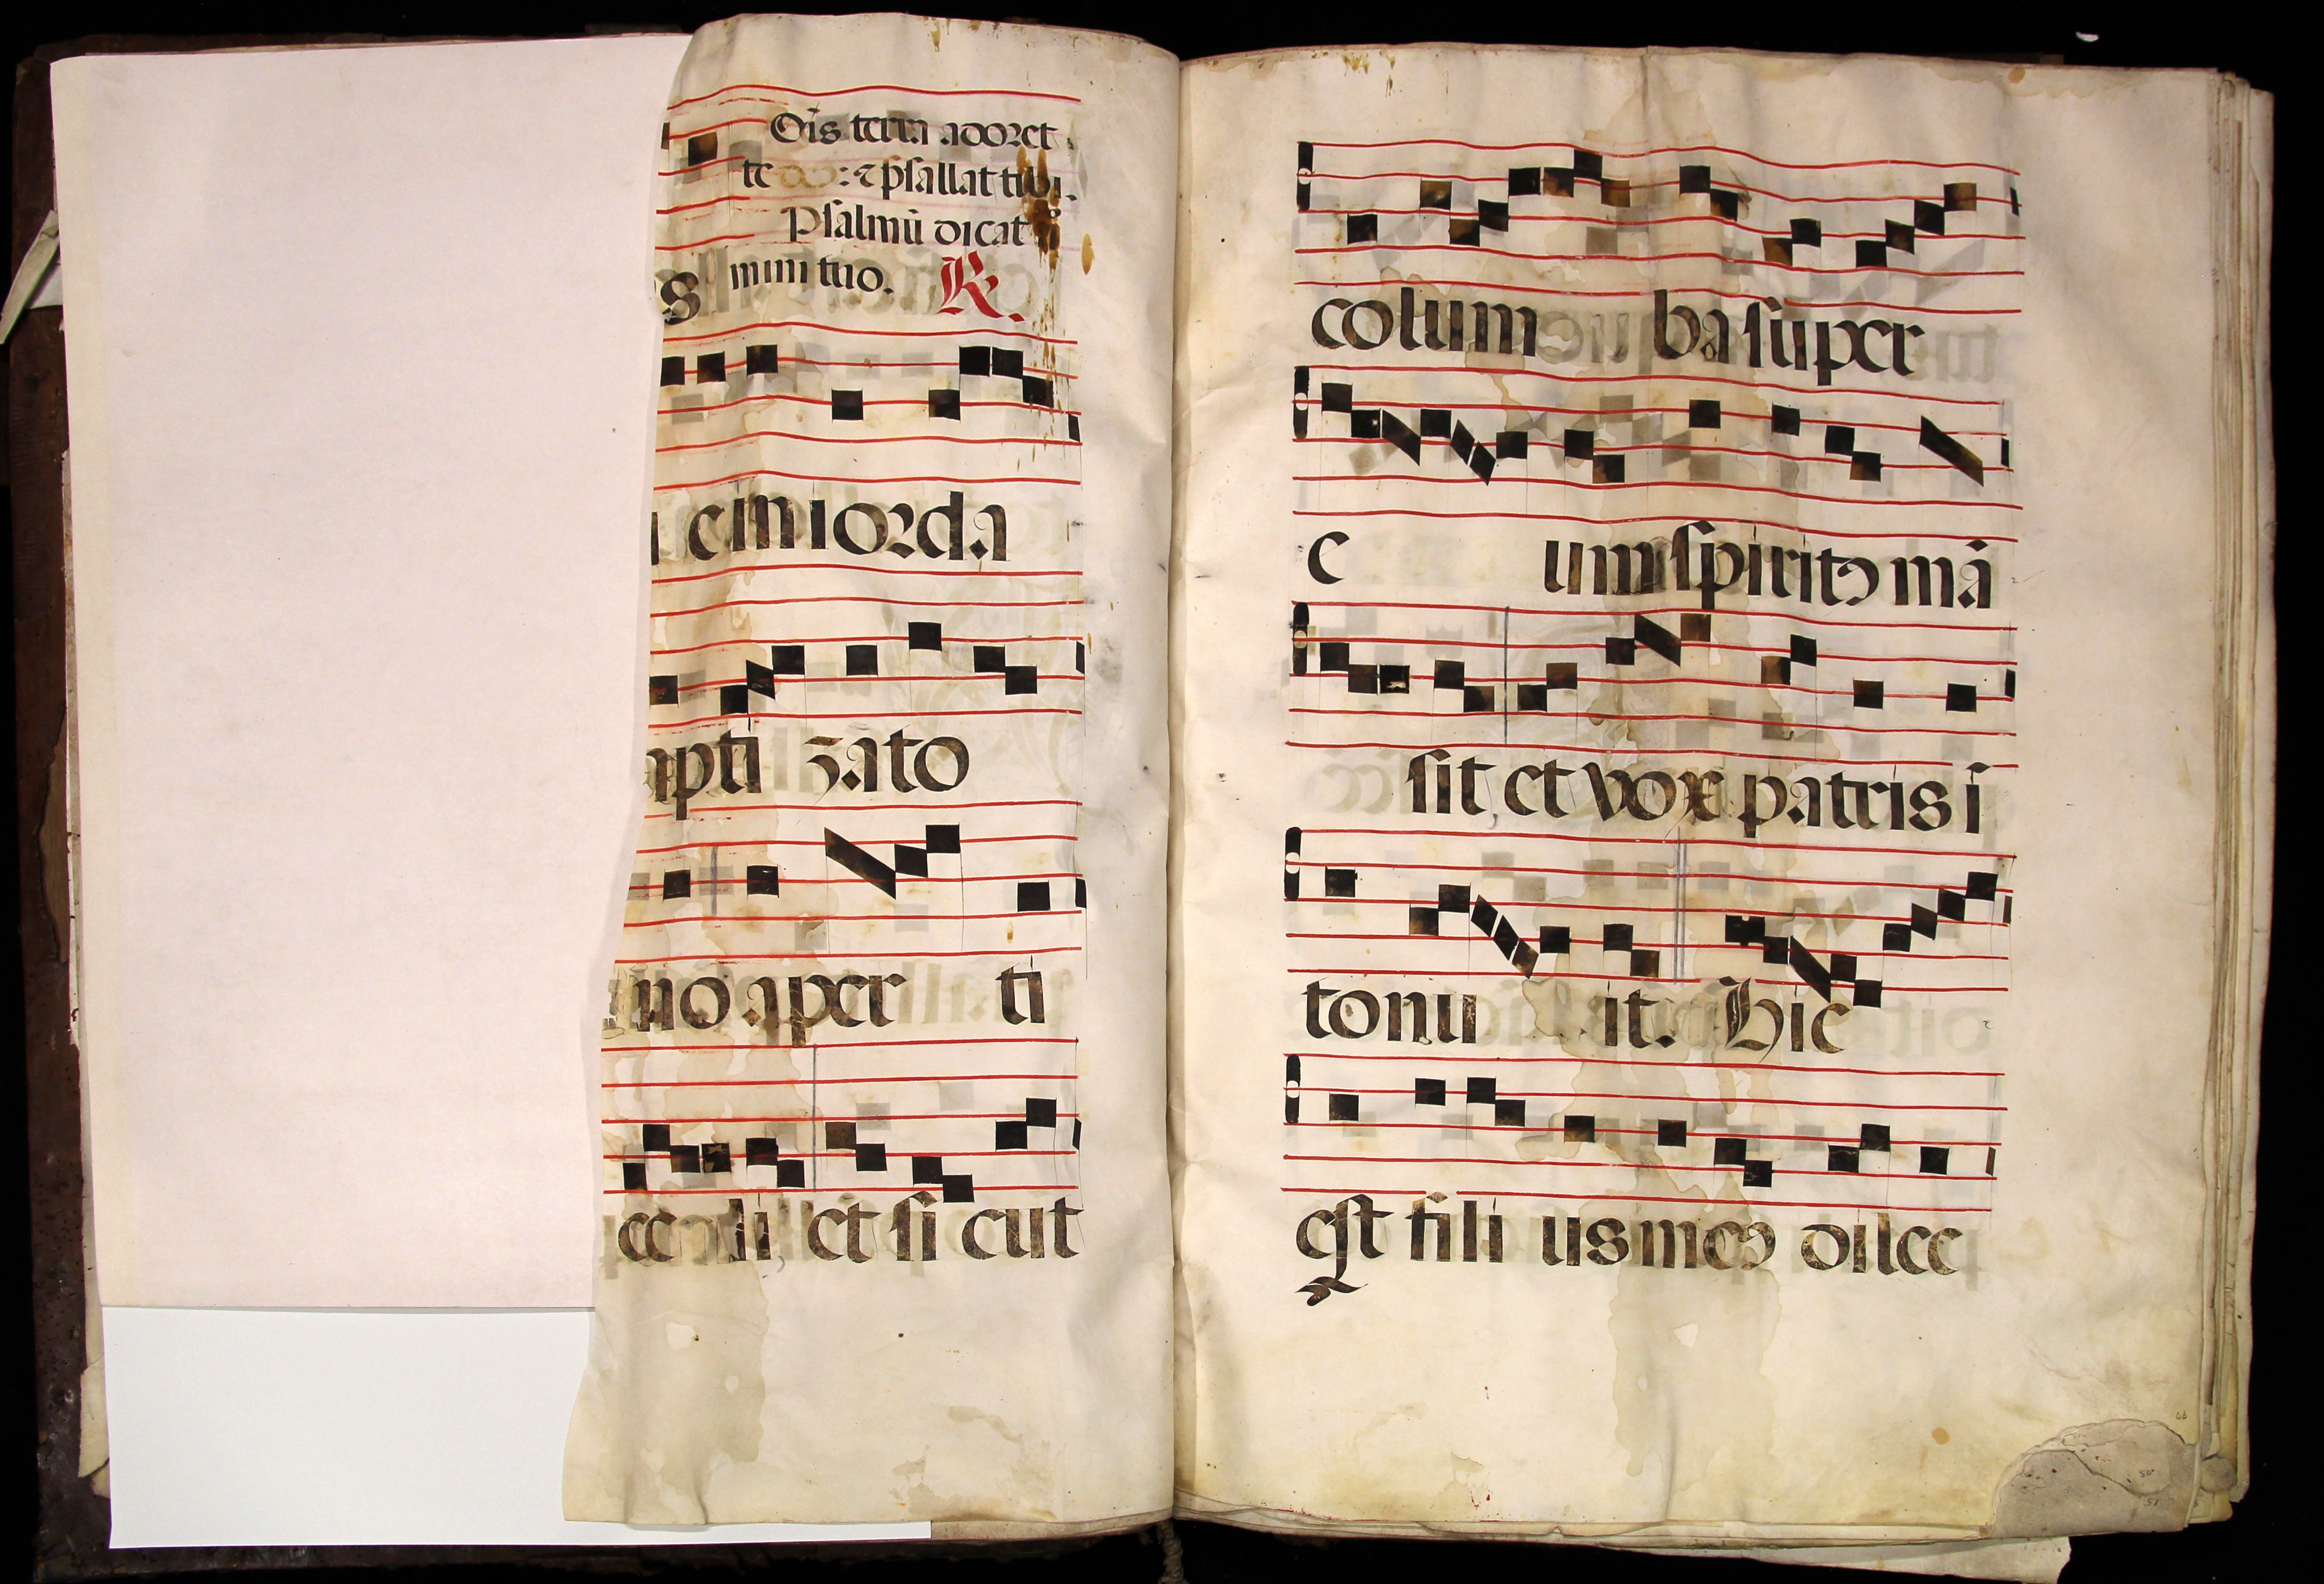 Oĩs terra adoret
te ds: ⁊ psallat tibi.
Psalmũ dicat
s mini tuo. R.
cin iorda
pti zato
no aper ti
ce li, et si cut
colum ba super
e um spiritꝰ mã
sit, et vox patris i
tonu it. Hic
est fili us meꝰ dilec